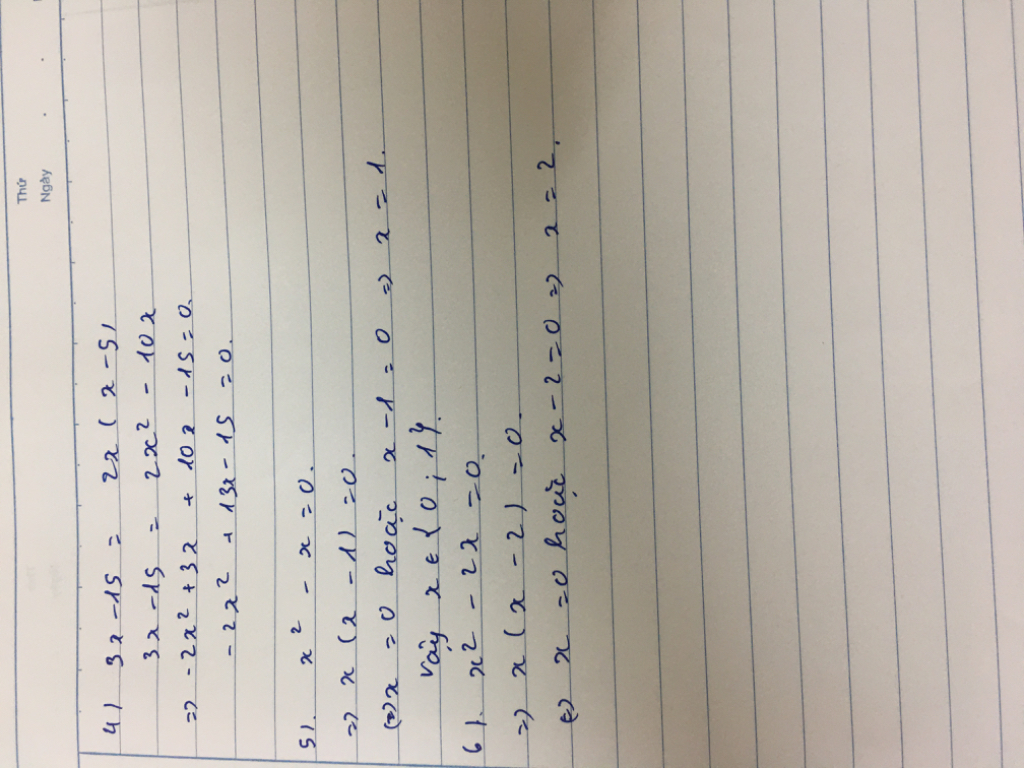 Thứ
Ngày
4) 3x - 15 = 2x ( x - 5)
3x - 15 = 2x² - 10x
=) -2x² + 3x + 10x - 15 = 0.
-2x² + 13x - 15 = 0.
5). x² - x = 0.
=) x ( x - 1 ) = 0.
(=) x = 0 hoặc x - 1 = 0 =) x = 1.
Vậy x ∈ { 0 ; 1 }.
6). x² - 2x = 0.
=) x ( x - 2 ) = 0.
(=) x = 0 hoặc x - 2 = 0 =) x = 2.